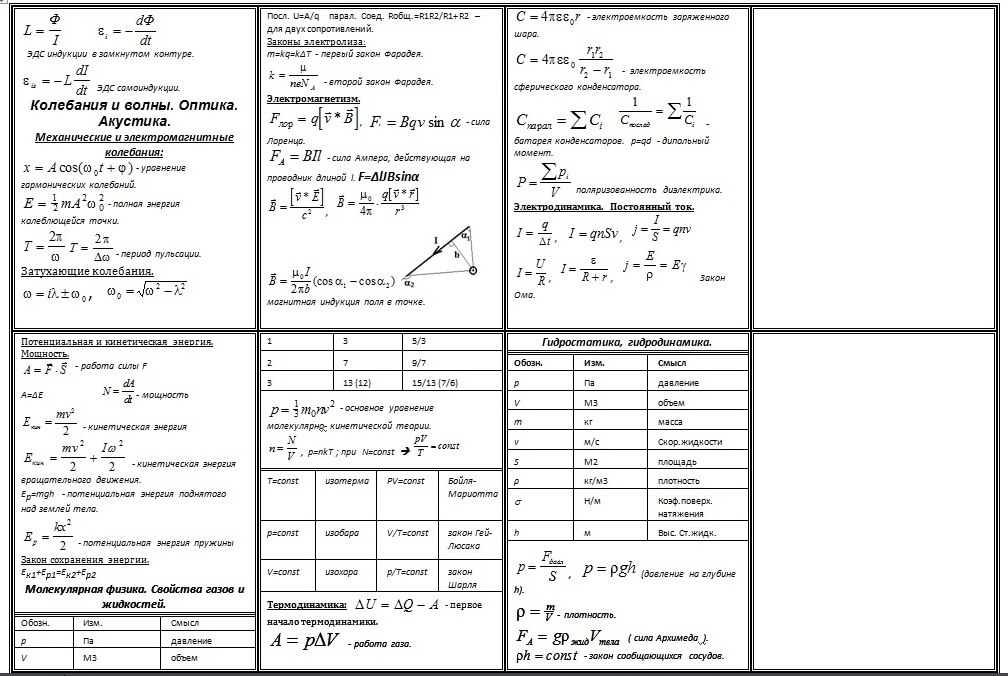 L = Φ/I   ε_i = −dΦ/dt
ЭДС индукции в замкнутом контуре.
ε_is = −L dI/dt ЭДС самоиндукции.
Колебания и волны. Оптика.
Акустика.
Механические и электромагнитные
колебания:
x = A cos(ω₀t + φ) - уравнение
гармонических колебаний.
E = ½ mA²ω₀² - полная энергия
колеблющейся точки.
T = 2π/ω T = 2π/Δω - период пульсации.
Затухающие колебания.
ω = iλ ± ω₀, ω₀ = √(ω² − λ²)
Посл. U=A/q парал. Соед. Rобщ.=R1R2/R1+R2 –
для двух сопротивлений.
Законы электролиза:
m=kq=kΔT - первый закон Фарадея.
k = μ/(neN_A) - второй закон Фарадея.
Электромагнетизм.
F_лор = q[v⃗ * B⃗], F. = Bqv sin α - сила
Лоренца.
F_A = BIl - сила Ампера, действующая на
проводник длиной l. F=ΔlJBsinα
B⃗ = [v⃗ * E⃗]/c², B⃗ = μ₀/4π · q[v⃗ * r⃗]/r³
I α₁
b
α₂
B⃗ = μ₀I/2πb (cos α₁ − cos α₂)
магнитная индукция поля в точке.
C = 4πεε₀r - электроемкость заряженного
шара.
C = 4πεε₀ r₁r₂/(r₂ − r₁) - электроемкость
сферического конденсатора.
C_парал = ∑C_i 1/C_послед = ∑1/C_i -
батарея конденсаторов. p=qd - дипольный
момент.
P = ∑p_i/V поляризованность диэлектрика.
Электродинамика. Постоянный ток.
I = q/Δt, I = qnSv, j = I/S = qnv
I = U/R, I = ε/(R + r), j = E/ρ = Eγ Закон
Ома.
Потенциальная и кинетическая энергия.
Мощность.
A = F⃗ · S⃗ - работа силы F
A=ΔE N = dA/dt - мощность
E_кин = mv²/2 - кинетическая энергия
E_кин = mv²/2 + Iω²/2 - кинетическая энергия
вращательного движения.
Eр=mgh - потенциальная энергия поднятого
над землей тела.
E_p = kx²/2 - потенциальная энергия пружины
Закон сохранения энергии.
Eк1+Eр1=Eк2+Eр2
Молекулярная физика. Свойства газов и
жидкостей.
Обозн. Изм. Смысл
p Па давление
V М3 объем
1 3 5/3
2 7 9/7
3 13 (12) 15/13 (7/6)
p = ⅓ m₀nv² - основное уравнение
молекулярно кинетической теории.
n = N/V, p=nkT ; при N=const ➔ pV/T = const
T=const изотерма PV=const Бойля-
Мариотта
p=const изобара V/T=const закон Гей-
Люсака
V=const изохора p/T=const закон
Шарля
Термодинамика: ΔU = ΔQ − A - первое
начало термодинамики.
A = pΔV - работа газа.
Гидростатика, гидродинамика.
Обозн. Изм. Смысл
p Па давление
V М3 объем
m кг масса
v м/с Скор.жидкости
S М2 площадь
ρ кг/м3 плотность
σ Н/м Коэф.поверх.
натяжения
h м Выс. Ст.жидк.
p = F_давл/S, p = ρgh (давление на глубине
h).
ρ = m/V - плотность.
F_A = gρ_жид V_тела ( сила Архимеда ).
ρh = const - закон сообщающихся сосудов.